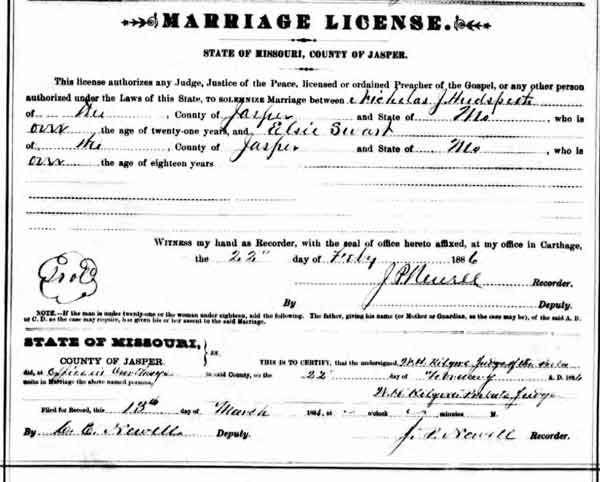 MARRIAGE LICENSE.
STATE OF MISSOURI, COUNTY OF JASPER.
This license authorizes any Judge, Justice of the Peace, licensed or ordained Preacher of the Gospel, or any other person
authorized under the Laws of this State, TO SOLEMNIZE Marriage between Nicholas J Hudspeth
of the , County of Jasper and State of Mo , who is
over the age of twenty-one years, and Elsie Swart
of the , County of Jasper and State of Mo , who is
over the age of eighteen years
WITNESS my hand as Recorder, with the seal of office hereto affixed, at my office in Carthage,
the 22" day of Feby 1886
J P Newell Recorder.
By Deputy.
NOTE.—If the man is under twenty-one or the woman under eighteen, add the following. The father, giving his name (or Mother or Guardian, as the case may be), of the said A. B.
or C. D. as the case may require, has given his or her assent to the said Marriage.
STATE OF MISSOURI, } ss.
COUNTY OF JASPER. THIS IS TO CERTIFY, that the undersigned, W. H. Kilgore Judge of the
did, at Carthage in said County, on the 22 day of February A. D. 1886
unite in Marriage the above named persons.
W H Kilgore Probate Judge
Filed for Record, this 13th day of March 1886, at o'clock minutes M.
By E. Newell Deputy. J. P. Newell Recorder.